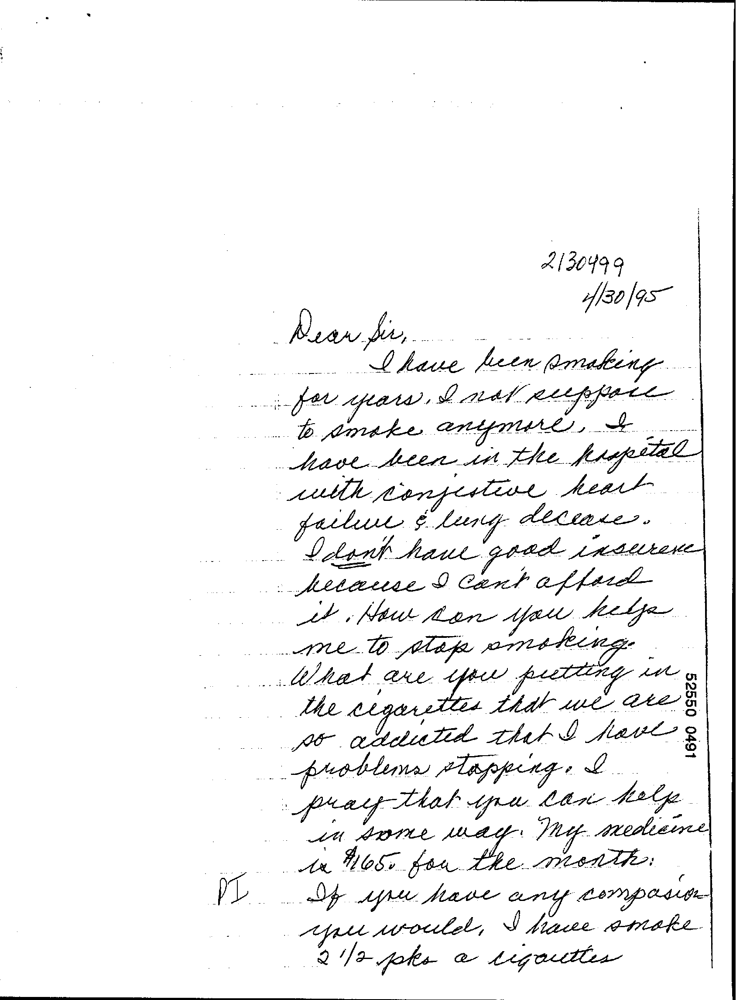 2130499
4/30/95
Dear Sir,
I have been smoking
for years. I not suppose
to smoke anymore. I
have been in the hospital
with conjestive heart
failure & lung decease.
I don't have good insurence
because I can't afford
it. How can you help
me to stop smoking.
What are you putting in
the cigarettes that we are
so addicted that I have
problems stopping. I
pray that you can help
in some way. My medicine
is $165. for the month.
PI
If you have any compasion
you would. I have smoke
2 1/2 pks a cigarettes
52550 0491